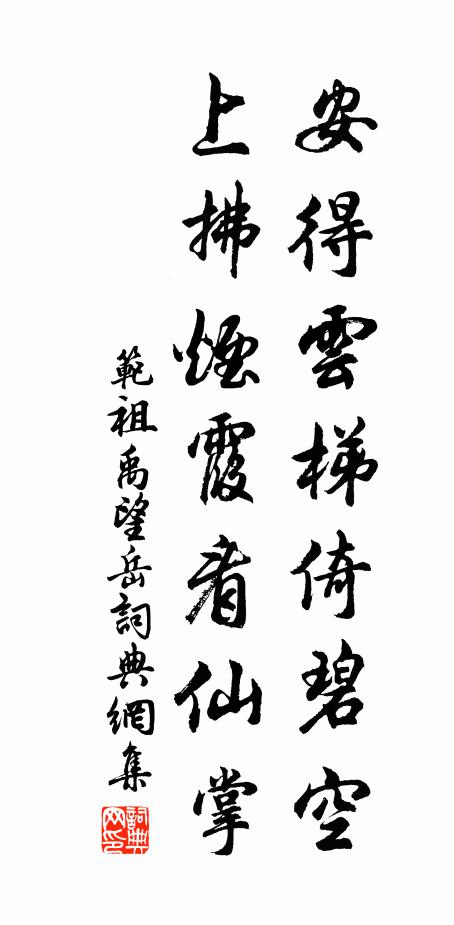 安得雲梯倚碧空
上拂煙霞看仙掌
範祖禹望岳詞典網集
詞典网印